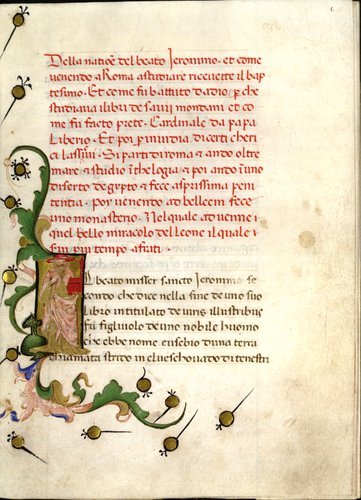 Della natioē del beato Jeronimo. et come
venendo a Roma a studiare riceuette il bap
tesimo. Et come fu battuto da dio, p che
studiaua i libri de sauij mondani et co
me fu facto prete. Cardinale da papa
Liberio. Et poi p inuidia di certi cheri
ci lassiui. Si parti di roma et ando oltre
mare et studio ī thelogia et poi ando ī uno
diserto degypto et fece asprissima peni
tentia. poi uenendo a belleem fece
uno monasterio. Nel quale aduenne
quel bello miracolo del leone il quale i
piu tempo a frati.
L beato misser sancto Jeronimo se
condo che dice nella fine de uno suo
Libro intitulato de uiris illustribus
fu figliuolo de uno nobile huomo
che ebbe nome eusebio duna terra
chiamata strido in el uescouado di tenestri